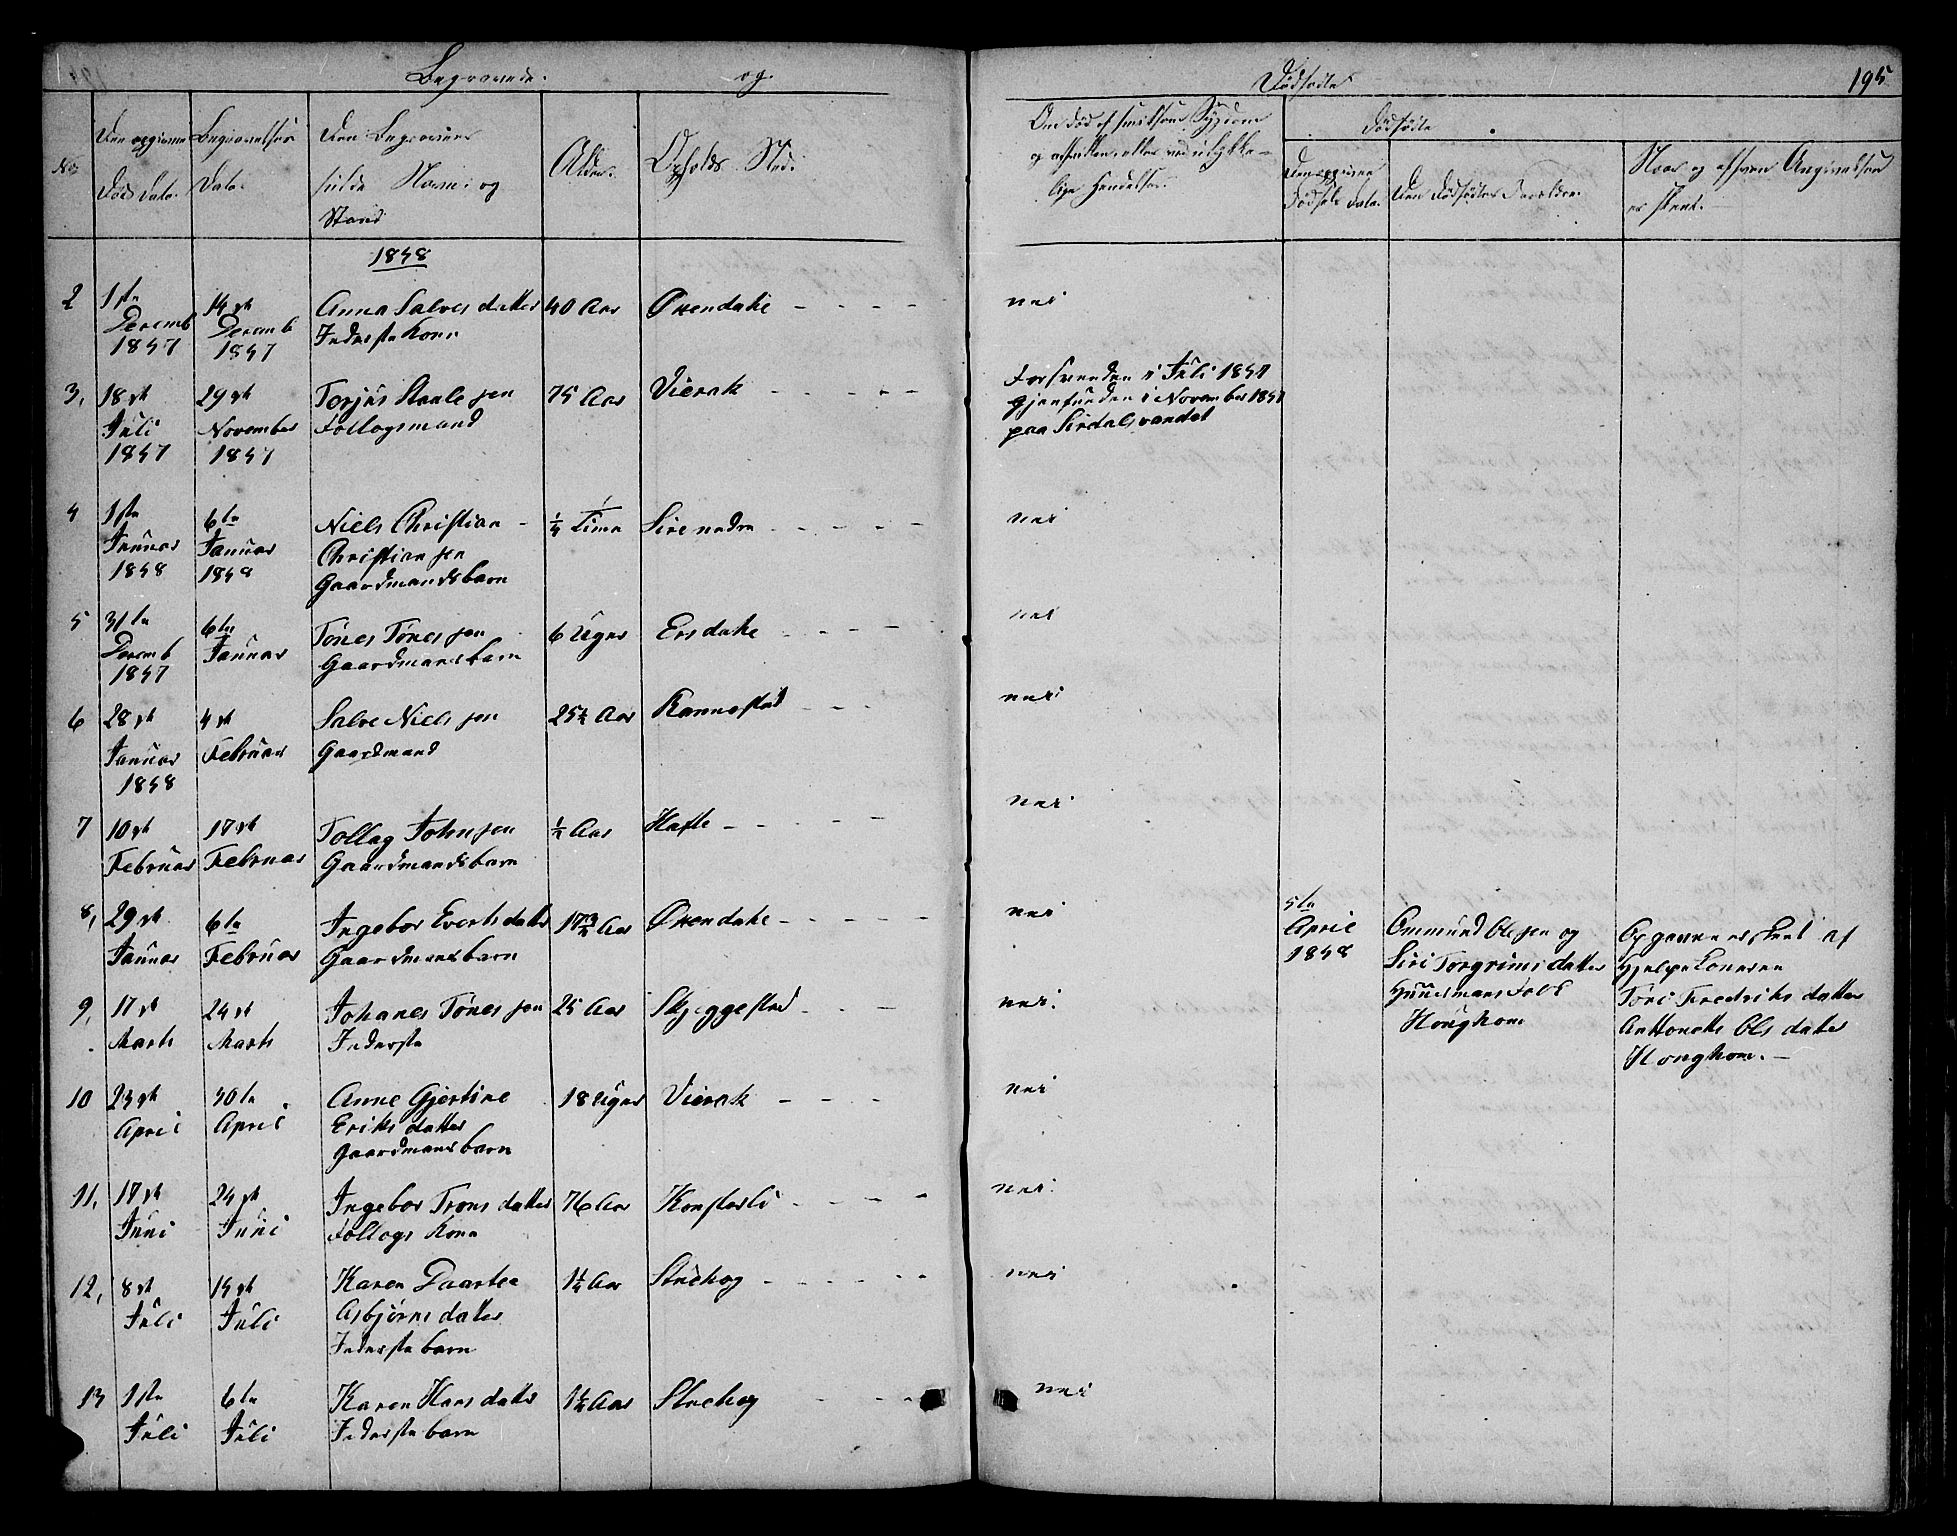 Begravede og Dødfødte 195
No
Den opgivne Døds Dato.
Begravelses Dato.
Den Begravnes fulde Navn og Stand
Alder.
Opholds Sted.
Om død af smitsom Sygdom
lige Hendelser.
Dødfødte
Den opgivne Dødføds Dato.
Den Dødfødtes Forældre.
Naar og af hvem Angivelsen
er skeet.
1858
2 1ste Decemb 1857 14de Decemb 1857 Anna Salves datter Inderste Kone 40 Aar Øxendale nei
3, 18de Juli 1857 29de November 1857 Torjus Staale sen Follogsmand 75 Aar Vierak Forsvunden i Juli 1857
gjenfunden i November 1857
paa Sirdalsvandet
4 1ste Januar 1858 6te Januar 1858 Niels Christian
Christian sen
Gaardmandsbarn ½ Time Sire nedre nei
5 31te Decemb 1857 6te Januar Tønes Tønes sen
Gaardmansbarn 6 Uger Ersdale nei
6 28de Januar 1858 4de Februar Salve Niels sen
Gaardmand 25½ Aar Rannestad nei
7 10de Februar 17de Februar Tollag John sen
Gaardmandsbarn ½ Aar Hafte nei
8, 29de Januar 6te Februar Ingebor Everts datter
Gaardmansbarn Aar Øxendale nei
5te April 1858
Ommund Ole sen og
Siri Torgrims datter
Huusmansfolk
Houghom
Opgaven er skeet af
Hjelpekonerne
Tori Fredriks datter
Anttonette Ols datter
Houghom.
9, 17de Marts 24de Marts Johanes Tønes sen
Inderste 25 Aar Skjeggestad nei
10 23de April 30te April Anne Gjertine
Eriks datter
Gaardmansbarn 18 Uger Vierak nei
11, 17de Juni 24de Juni Ingebor Trons datter
Follogs Kone 76 Aar Konsterli nei
12, 8de Juli 15de Juli Karen Taartea
Asbjørns datter
Inderste barn 1½ Aar Stuehog nei
13 1ste Juli 6te Juli Karen Hans datter
Inderste barn 1½ Aar Stuehog nei